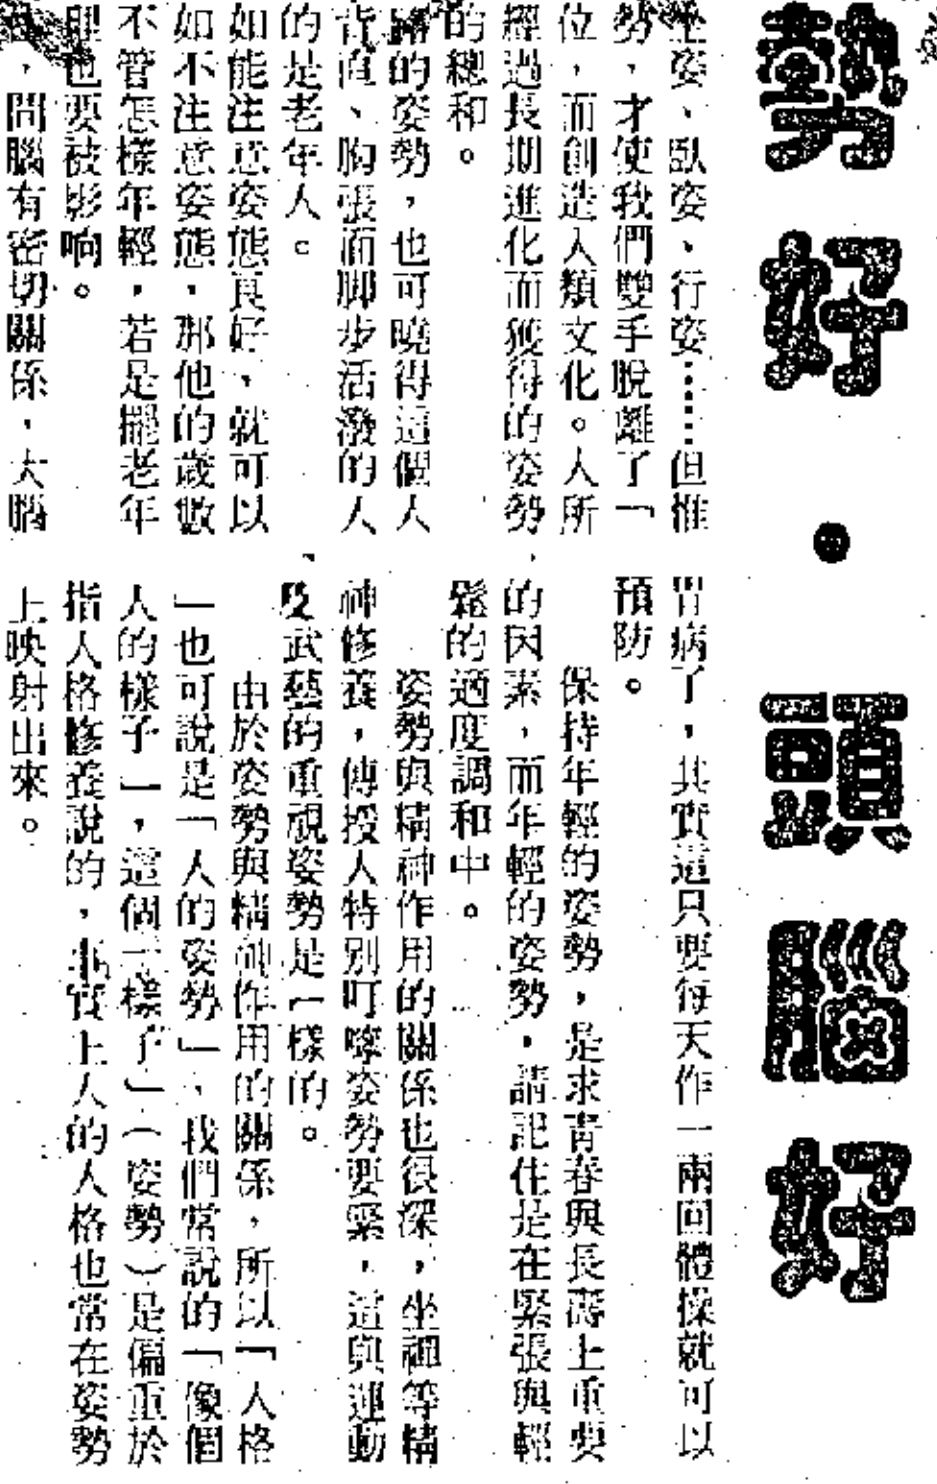 勢好・頭腦好
坐姿、臥姿、行姿……但惟
勢，才使我們雙手脫離了「
位，而創造人類文化。人所
經過長期進化而獲得的姿勢
的總和。
的姿勢，也可曉得這個人
背直、胸張而脚步活潑的人
的是老年人。
如能注意姿態良好，就可以
如不注意姿態，那他的歲數
不管怎樣年輕，若是擺老年
理也要被影响。
，問腦有密切關係，大腦
胃病了，其實這只要每天作一兩回體操就可以
預防。
保持年輕的姿勢，是求青春與長壽上重要
的因素，而年輕的姿勢，請記住是在緊張與輕
鬆的適度調和中。
姿勢與精神作用的關係也很深，坐禪等精
神修養，傳授人特別叮嚀姿勢要緊，這與運動
及武藝的重視姿勢是一樣的。
由於姿勢與精神作用的關係，所以「人格
」也可說是「人的姿勢」、我們常說的「像個
人的樣子」，這個「樣子」（姿勢）是偏重於
指人格修養說的，事實上人的人格也常在姿勢
上映射出來。